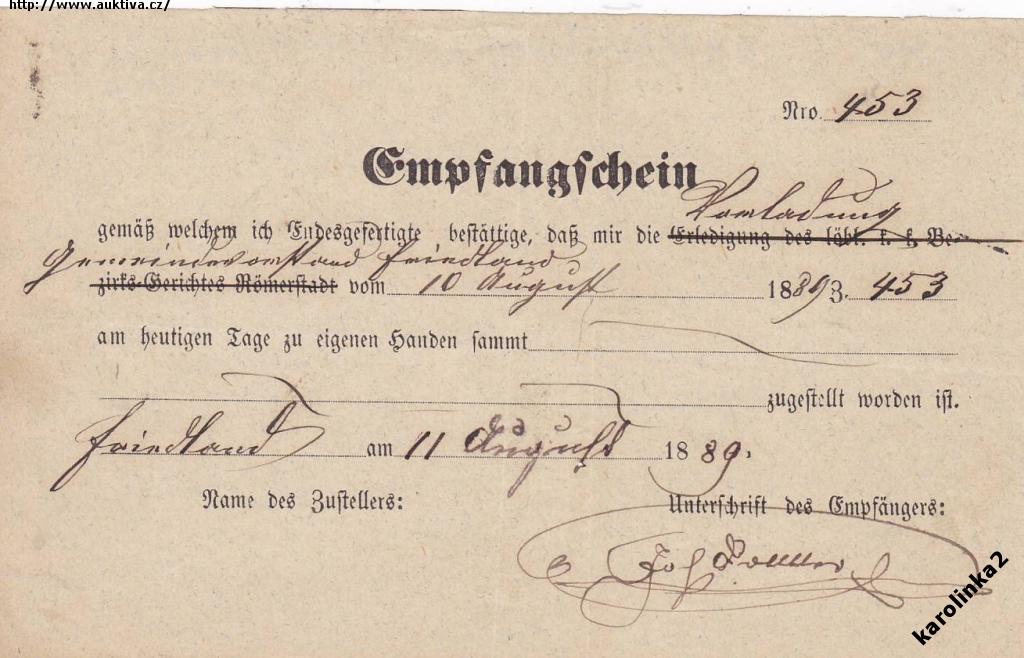 http://www.auktiva.cz/
Nro. 453
Empfangschein
Vorladung
gemäß welchem ich Endesgefertigte bestättige, daß mir die Erledigung des löbl. k. k. Be-
Gemeindevorstand Friedland
zirks-Gerichtes Römerstadt vom 10 August 1889 Z. 453
am heutigen Tage zu eigenen Handen sammt
zugestellt worden ist.
Friedland am 11 August 1889.
Name des Zustellers: Unterschrift des Empfängers:
Joh
karolinka2